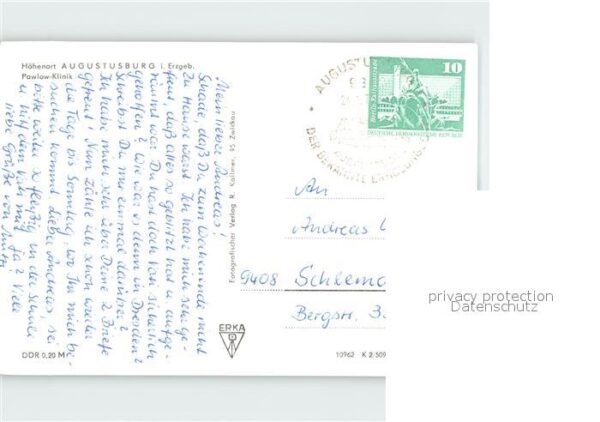 Höhenort AUGUSTUSBURG i. Erzgeb.
Pawlow-Klinik
Mein lieber Andreas!
Schade, daß Du zum Wochenende nicht
zu Hause warst. Ich habe mich sehr ge-
freut, daß alles so geblitzt hat u. aufge-
räumt war. Du hast doch Vati sicherlich
geholfen? Wie war es denn in Dresden?
Schreibst Du mir einmal darüber?
Ich habe mich sehr über Deine 2 Briefe
gefreut! Nun zähle ich schon wieder
die Tage bis Sonntag, wo Ihr mich be-
suchen kommt. Lieber Andreas, sei
bitte weiter so fleißig in der Schule
u. hilf dem Vati mit, ja? Viele
liebe Grüße von Mutti
DDR 0,20 M
Fotografischer Verlag R. Kallmer, 95 Zwickau
ERKA
10962 K 2/509
AUGUSTU
DER BEKANNTE ERHOLUNGSO
10
DEUTSCHE DEMOKRATISCHE REPUBLIK
An
Andreas
9408 Schlema
Bergstr. 3
privacy protection
Datenschutz